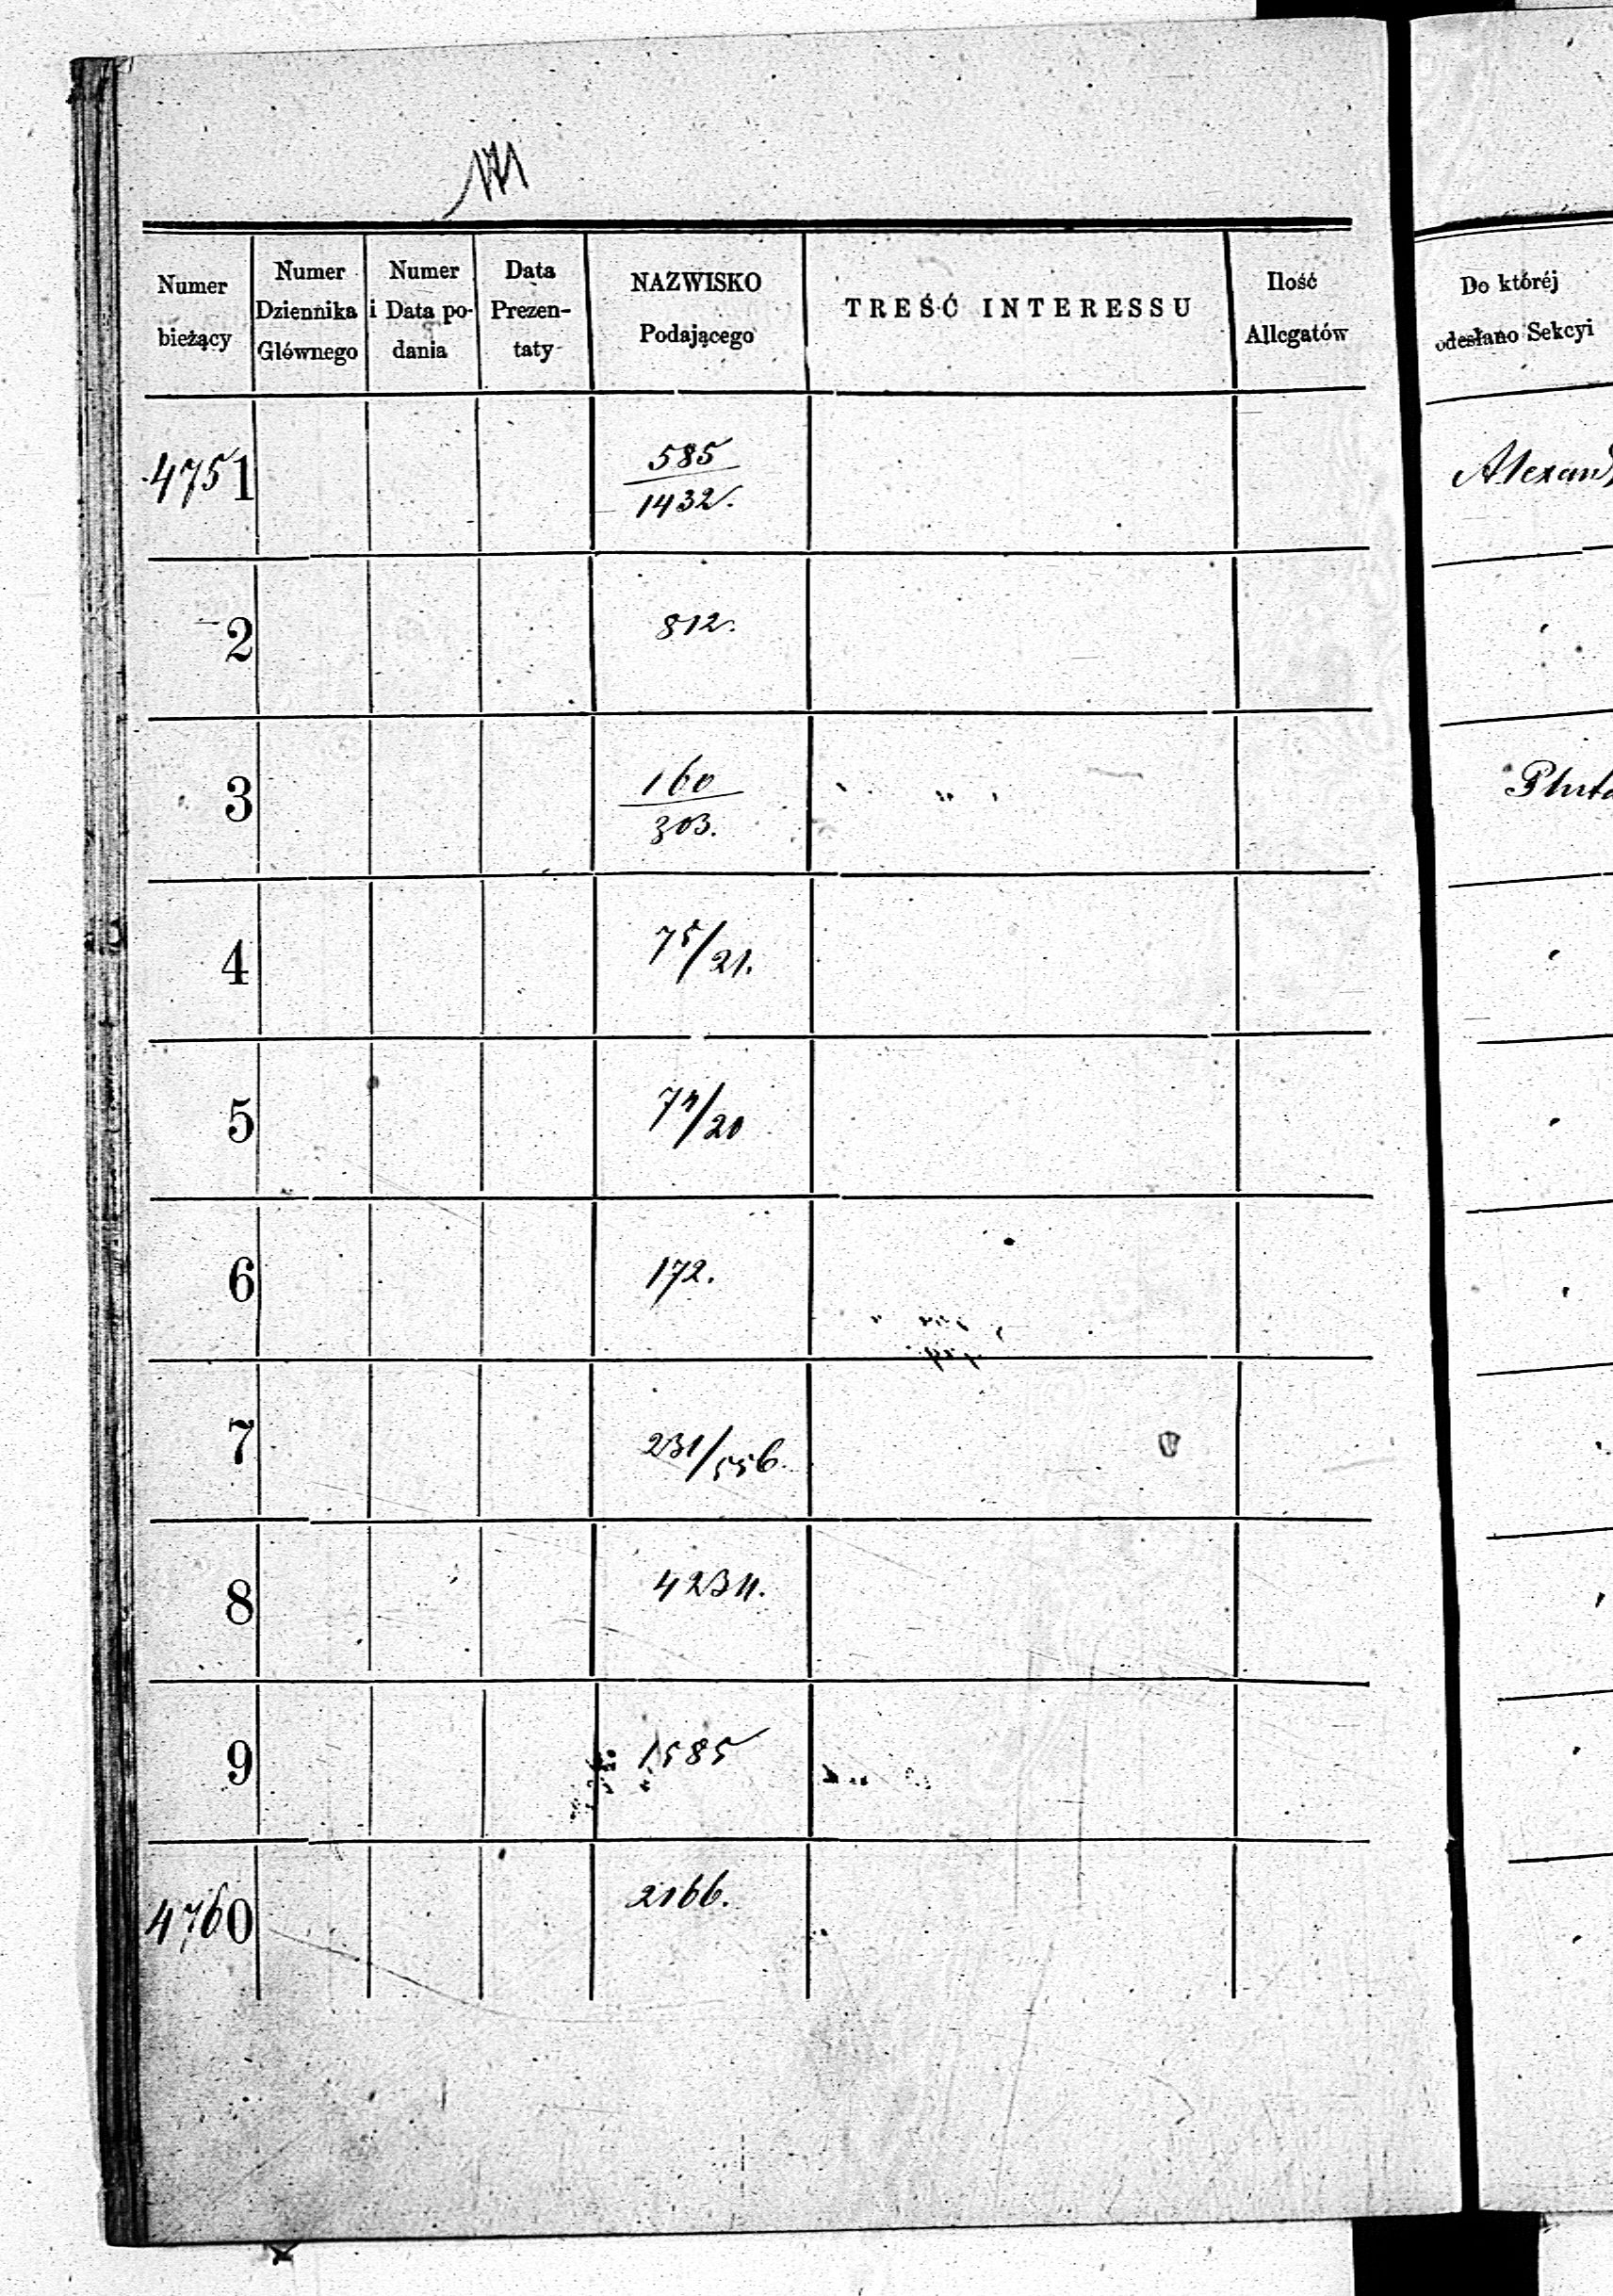 Numer bieżący
Numer Dziennika Głównego
Numer i Data podania
Data Prezentaty
NAZWISKO Podającego
TREŚĆ INTERESSU
Ilość Allegatów
Do któréj odesłano Sekcyi
4751 585/1432. Alexand
2 812.
3 160/303. Pluta
4 75/21.
5 74/20
6 172.
7 231/556.
8 4234.
9 1585
4760 2166.